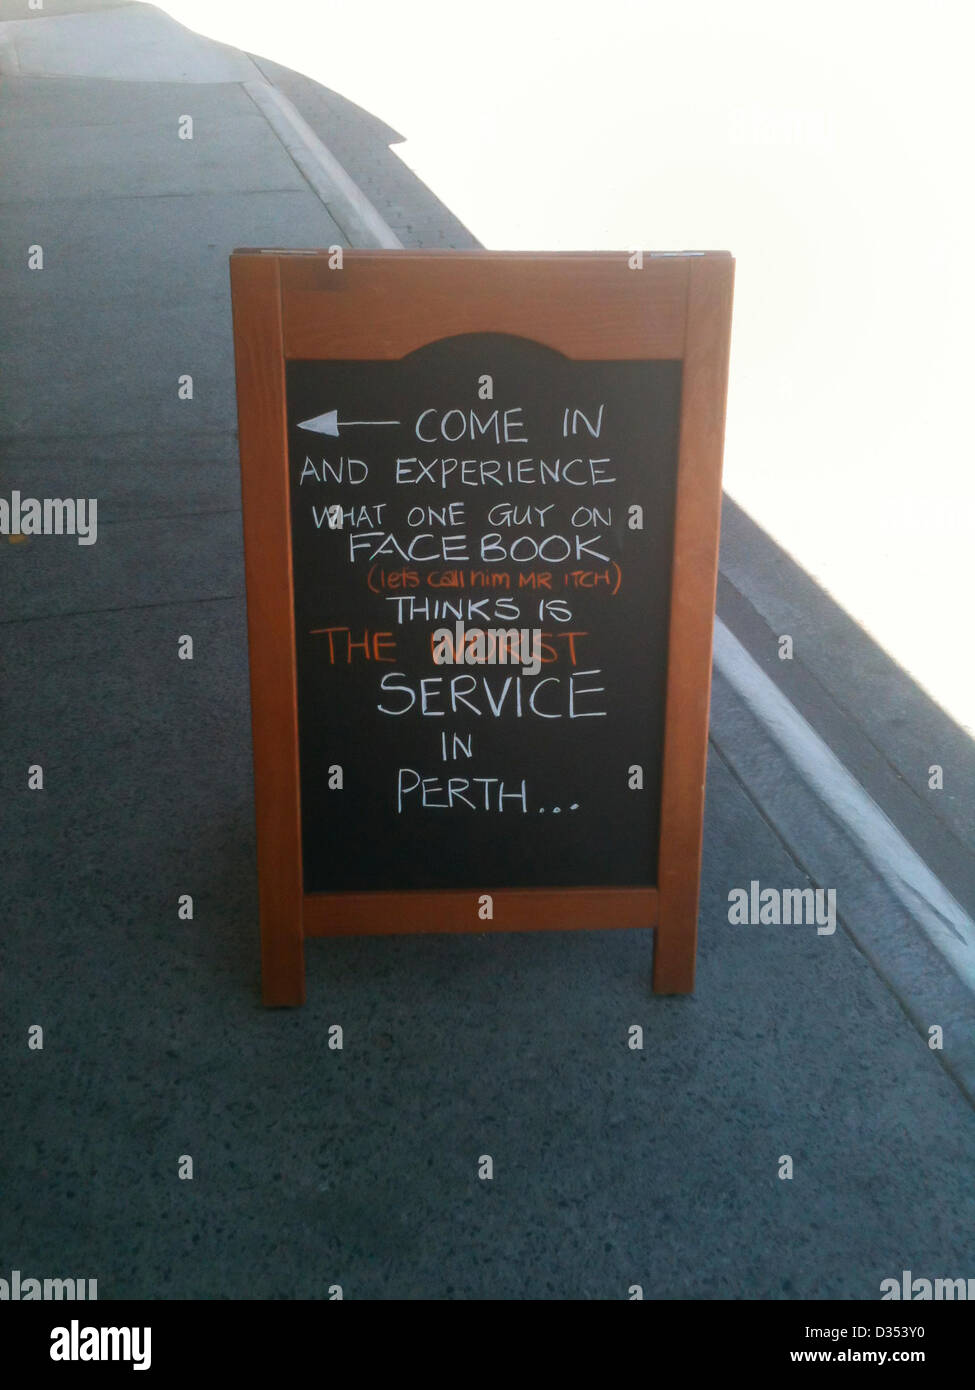 COME IN
AND EXPERIENCE
WHAT ONE GUY ON
FACEBOOK
(let's call him MR ITCH)
THINKS IS
THE WORST
SERVICE
IN
PERTH...
alamy
alamy
alamy
alamy
alamy
alamy
Image ID: D353Y0
www.alamy.com